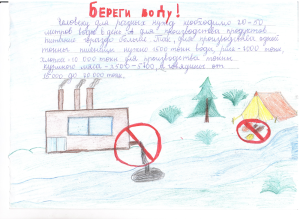 Береги воду!
Человеку для разных нужд необходимо 20-50
литров воды в день. А для производства продуктов
питания гораздо больше. Так, для производства одной
тонны пшеницы нужно 1500 тонн воды, риса - 4000 тонн,
хлопка - 10 000 тонн для производства тонны
куриного мяса - 3500 - 5700, а говядины от
15 000 до 70 000 тонн.